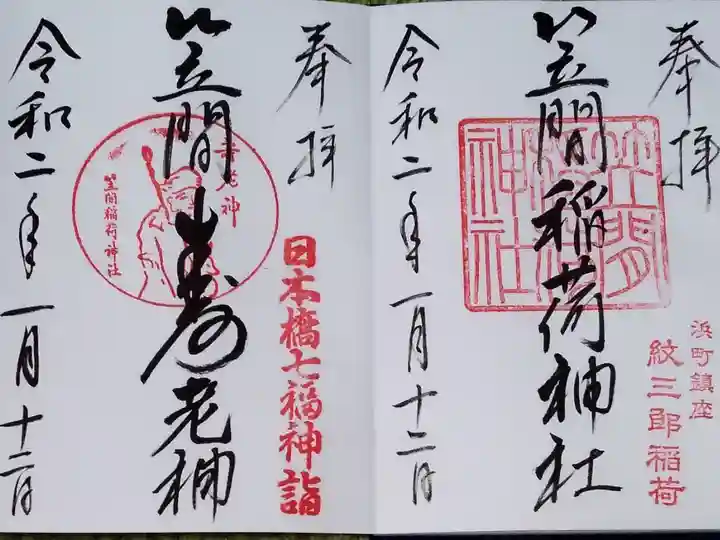 奉拝
笠間稲荷神社
笠間稲荷神社
浜町鎮座
紋三郎稲荷
令和二年一月十二日
奉拝
日本橋七福神詣
笠間寿老神
寿老神
笠間稲荷神社
令和二年一月十二日